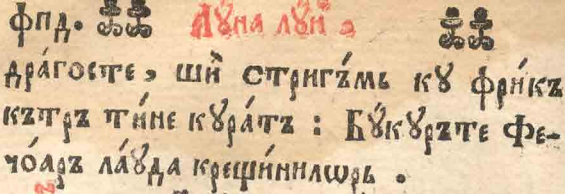 фпд. Лꙋ́на лꙋй ,
дра́госте, шй стриги́мь кꙋ фри́къ
кътръ ти́не кꙋра́тъ : Бꙋ́кꙋръте Фе-
чо́аръ ла́ꙋда крещи́нилѡрь .